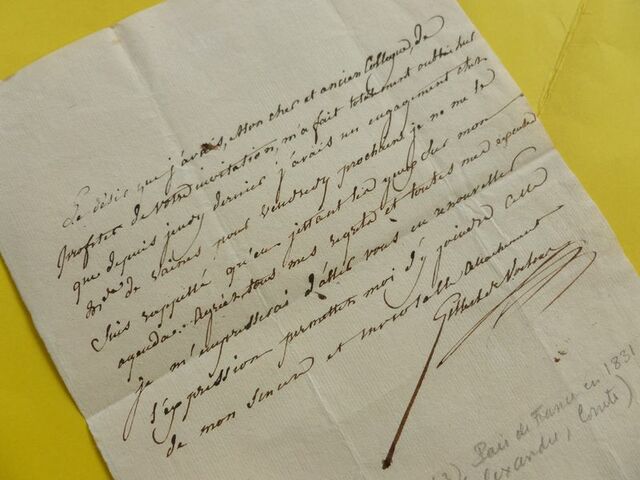 Le désir que j'avais, Mon cher et ancien Collegue, de
profiter de votre invitation, m'a fait totalement oublié
que depuis jeudy dernier j'avais un engagement chez
de Vaines pour vendredy prochain, je ne me le
suis rappellé qu'en jettant les yeux sur mon
agenda. Agréez tous mes regrets et toutes mes excuses
je m'empresserai d'aller vous en renouveller
l'expression permettez moi d'y joindre celle
de mon sincere et inviolable Attachement
Gilbert de Voisins
3) Pair de France en 1831
lexandre, Comte)